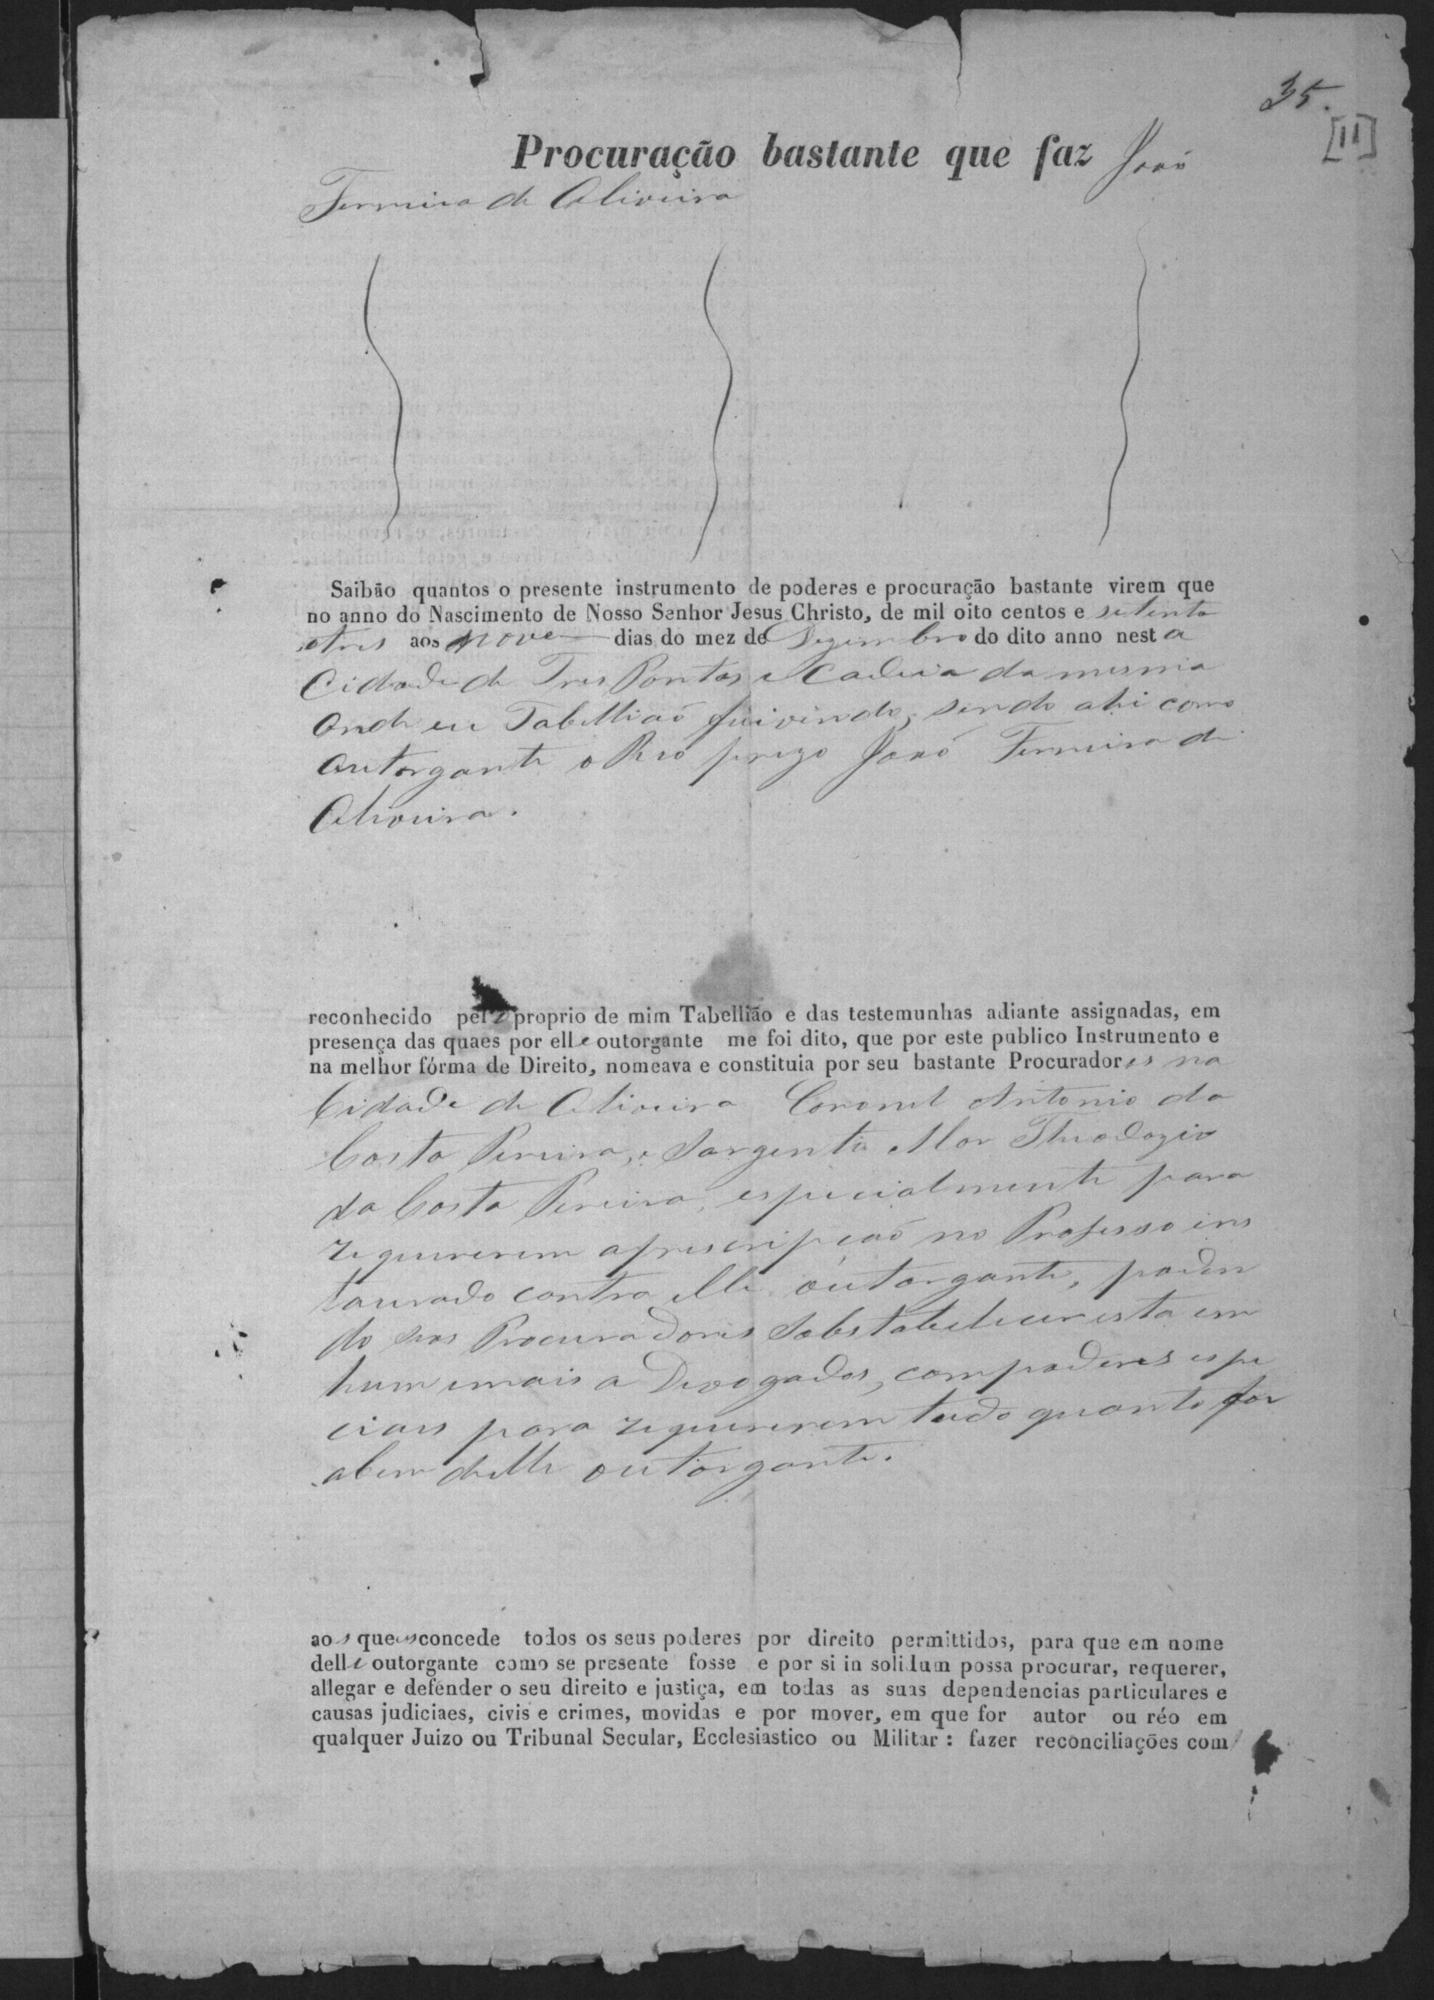 35.
[11]
Procuração bastante que faz João
Ferreira de Oliveira
Saibão quantos o presente instrumento de poderes e procuração bastante virem que
no anno do Nascimento de Nosso Senhor Jesus Christo, de mil oito centos e setenta
e tres aos nove dias do mez de Dezembro do dito anno nesta
Cidade de Tres Pontas e Cadeia da mesma
onde eu Tabellião fui vindo, sendo ahi como
outorgante o Reo prezo João Ferreira de
Oliveira.
reconhecido pelo proprio de mim Tabellião e das testemunhas adiante assignadas, em
presença das quaes por elle outorgante me foi dito, que por este publico Instrumento e
na melhor fórma de Direito, nomeava e constituia por seu bastante Procuradores na
Cidade de Oliveira Coronel Antonio da
Costa Pereira, e Sargento Mor Theodozio
da Costa Pereira, especialmente para
requererem a prescripção no Processo ins
taurado contra elle outorgante, poden
do seos Procuradores Sobstabelecer esta em
hum e mais a Devogados, com poderes espe
ciais para requererem tudo quanto for
abem delle outorgante.
aos ques concede todos os seus poderes por direito permittidos, para que em nome
delle outorgante como se presente fosse e por si in solidum possa procurar, requerer,
allegar e defender o seu direito e justiça, em todas as suas dependencias particulares e
causas judiciaes, civis e crimes, movidas e por mover, em que for autor ou réo em
qualquer Juizo ou Tribunal Secular, Ecclesiastico ou Militar : fazer reconciliações com